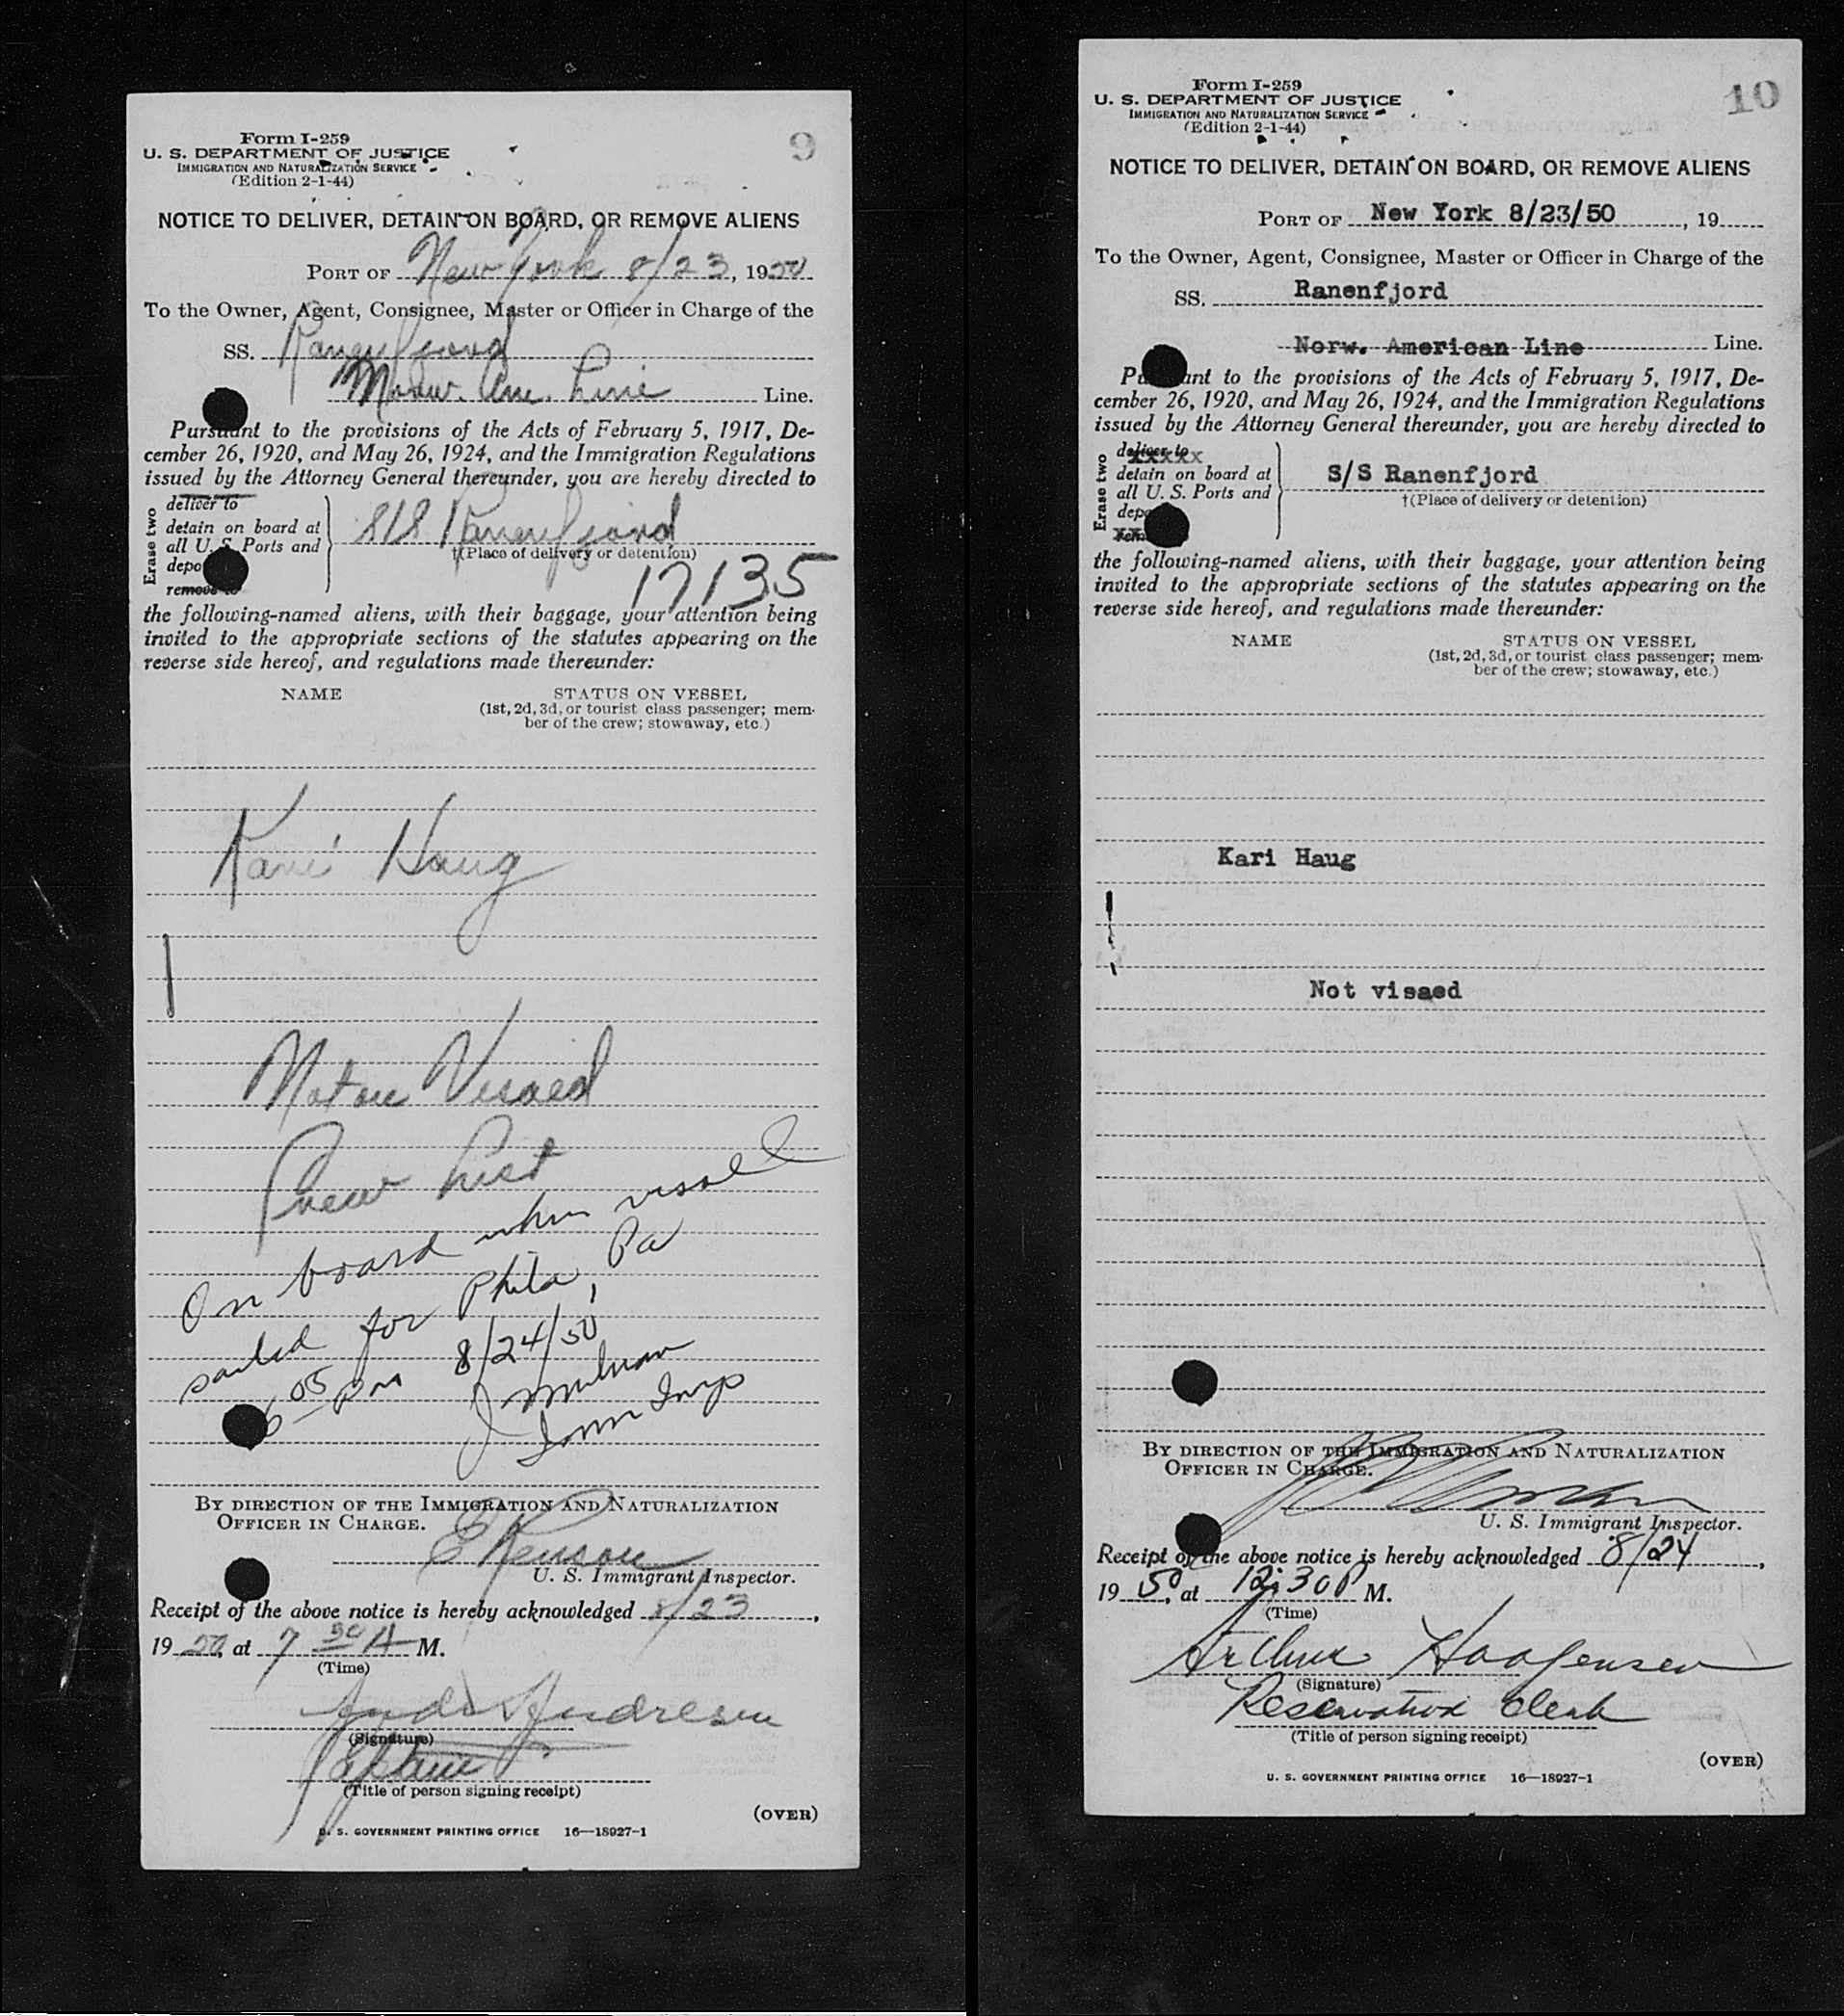 Form I-259
U. S. DEPARTMENT OF JUSTICE
IMMIGRATION AND NATURALIZATION SERVICE
(Edition 2-1-44)
9
NOTICE TO DELIVER, DETAIN ON BOARD, OR REMOVE ALIENS
PORT OF New York 8/23, 1950
To the Owner, Agent, Consignee, Master or Officer in Charge of the
SS. Ranenfjord
Am. Line Line.
Pursuant to the provisions of the Acts of February 5, 1917, De-
cember 26, 1920, and May 26, 1924, and the Immigration Regulations
issued by the Attorney General thereunder, you are hereby directed to
Erase two
deliver to
detain on board at
all U. S. Ports and
depo
remove to
S/S Ranenfjord
†(Place of delivery or detention)
17135
the following-named aliens, with their baggage, your attention being
invited to the appropriate sections of the statutes appearing on the
reverse side hereof, and regulations made thereunder:
NAME
STATUS ON VESSEL
(1st, 2d, 3d, or tourist class passenger; mem-
ber of the crew; stowaway, etc.)
Kari Haug
Visaed
Crew List
On board when vessel
sailed for Phila, Pa
6 05 PM 8/24/50
J
Imm Insp
BY DIRECTION OF THE IMMIGRATION AND NATURALIZATION
OFFICER IN CHARGE.
U. S. Immigrant Inspector.
Receipt of the above notice is hereby acknowledged 8/23,
1950, at 7 30 A M.
(Time)
Andresen
(Signature)
Captain
(Title of person signing receipt)
(OVER)
U. S. GOVERNMENT PRINTING OFFICE 16—18927-1
Form I-259
U. S. DEPARTMENT OF JUSTICE
IMMIGRATION AND NATURALIZATION SERVICE
(Edition 2-1-44)
10
NOTICE TO DELIVER, DETAIN ON BOARD, OR REMOVE ALIENS
PORT OF New York 8/23/50, 19
To the Owner, Agent, Consignee, Master or Officer in Charge of the
SS. Ranenfjord
Norw. American Line Line.
Pursuant to the provisions of the Acts of February 5, 1917, De-
cember 26, 1920, and May 26, 1924, and the Immigration Regulations
issued by the Attorney General thereunder, you are hereby directed to
Erase two
deliver to
detain on board at
all U. S. Ports and
depo
S/S Ranenfjord
†(Place of delivery or detention)
the following-named aliens, with their baggage, your attention being
invited to the appropriate sections of the statutes appearing on the
reverse side hereof, and regulations made thereunder:
NAME
STATUS ON VESSEL
(1st, 2d, 3d, or tourist class passenger; mem-
ber of the crew; stowaway, etc.)
Kari Haug
Not visaed
BY DIRECTION OF THE IMMIGRATION AND NATURALIZATION
OFFICER IN CHARGE.
U. S. Immigrant Inspector.
Receipt of the above notice is hereby acknowledged 8/24,
1950, at 12:30 P M.
(Time)
Arthur Haagensen
(Signature)
Reservation Clerk
(Title of person signing receipt)
(OVER)
U. S. GOVERNMENT PRINTING OFFICE 16—18927-1